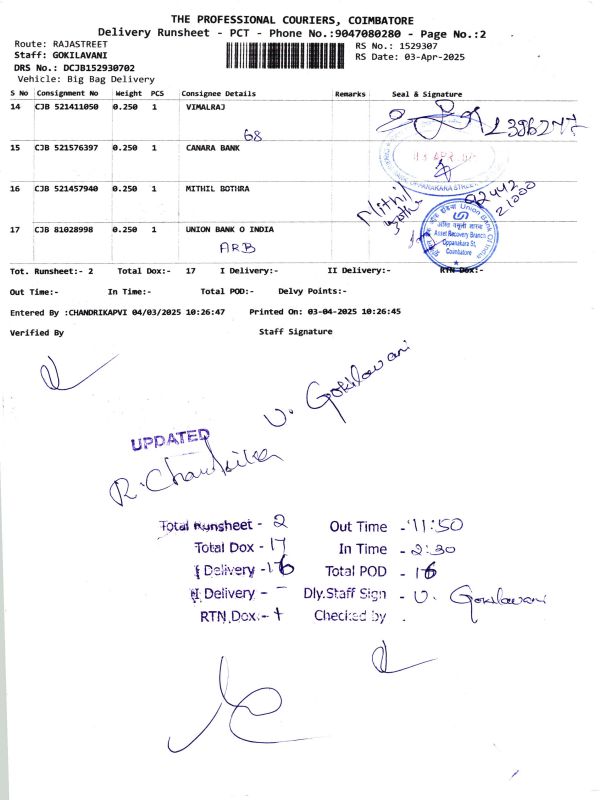 THE PROFESSIONAL COURIERS, COIMBATORE
Delivery Runsheet - PCT - Phone No.:9047080280 - Page No.:2
Route: RAJASTREET
RS No.: 1529307
Staff: GOKILAVANI
RS Date: 03-Apr-2025
DRS No.: DCJB152930702
Vehicle: Big Bag Delivery
S No Consignment No Weight PCS Consignee Details Remarks Seal & Signature
14 CJB 521411050 0.250 1 VIMALRAJ
68
15 CJB 521576397 0.250 1 CANARA BANK
16 CJB 521457940 0.250 1 MITHIL BOTHRA
Mithil
17 CJB 81028998 0.250 1 UNION BANK O INDIA
ARB
Union Bank Of India
Asset Recovery Branch
Oppanakara St,
Coimbatore
Tot. Runsheet:- 2 Total Dox:- 17 I Delivery:- II Delivery:- RTN Dox:-
Out Time:- In Time:- Total POD:- Delvy Points:-
Entered By :CHANDRIKAPVI 04/03/2025 10:26:47 Printed On: 03-04-2025 10:26:45
Verified By Staff Signature
V. Gokilavani
UPDATED
R. Chandrika
Total Runsheet - 2 Out Time - 11:50
Total Dox - 17 In Time - 2:30
I Delivery - 16 Total POD - 16
II Delivery - - Dly.Staff Sign - V. Gokilavani
RTN Dox - Checked by